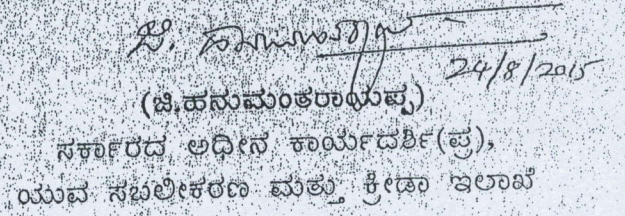 24/8/2015
(ಜಿ.ಹನುಮಂತರಾಯಪ್ಪ)
ಸರ್ಕಾರದ ಅಧೀನ ಕಾರ್ಯದರ್ಶಿ(ಪ್ರ),
ಯುವ ಸಬಲೀಕರಣ ಮತ್ತು ಕ್ರೀಡಾ ಇಲಾಖೆ